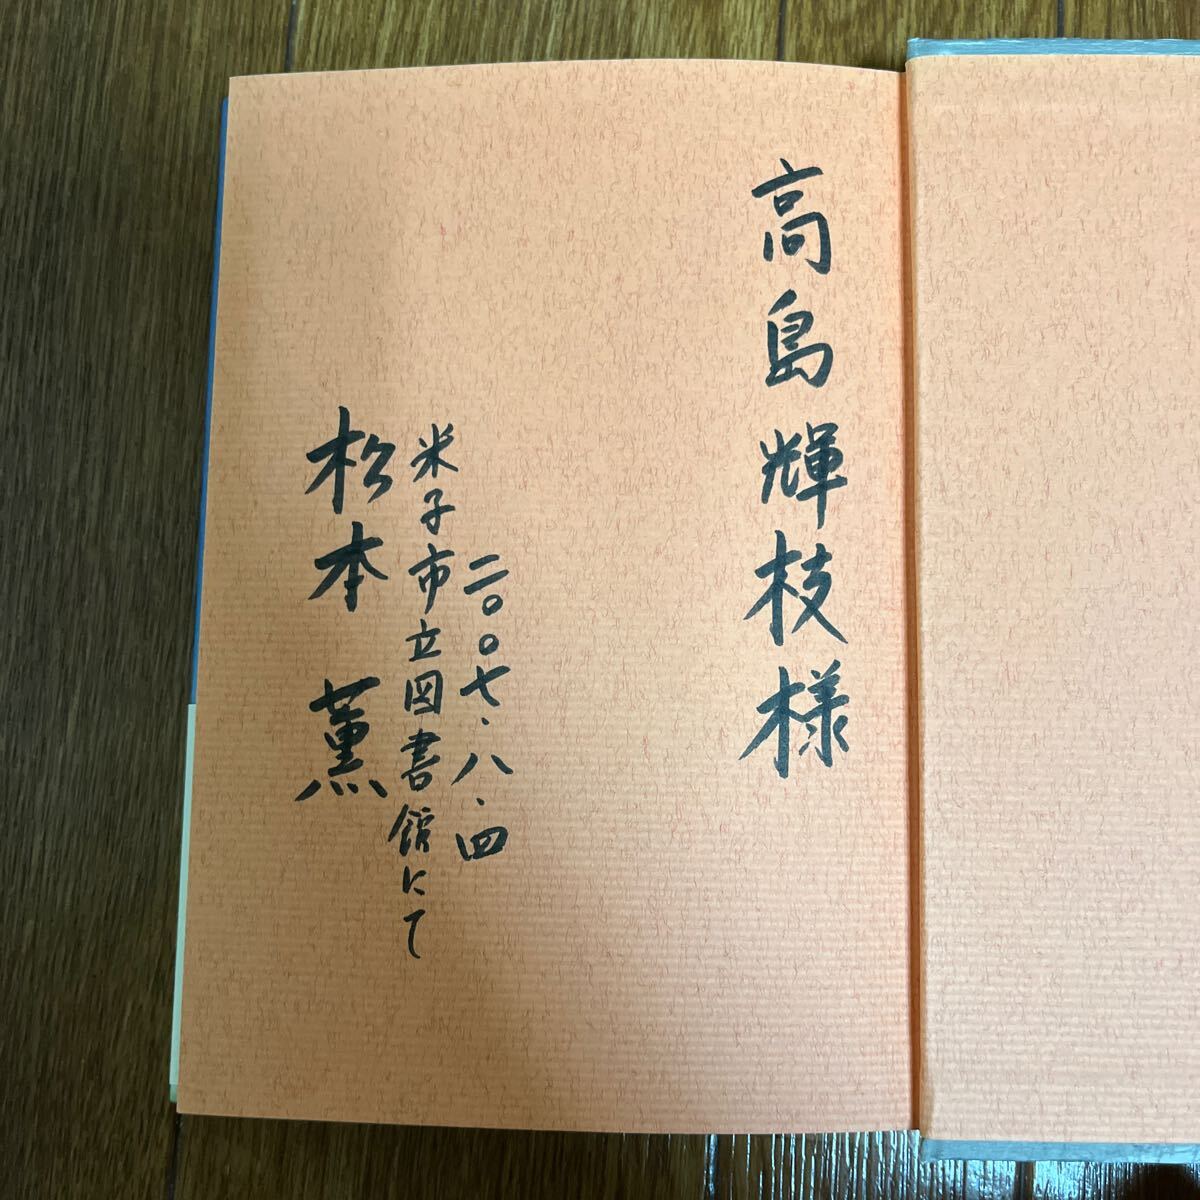 高島輝枝様
二〇〇七.八.四
米子市立図書館にて
松本薫